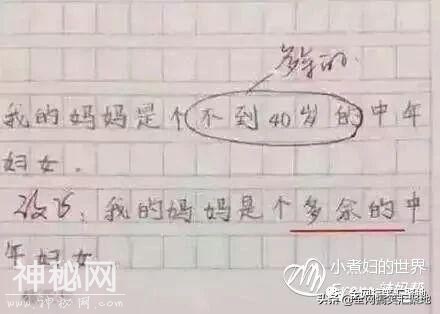 多余的
我的妈妈是个不到40岁的中年
妇女。
改正：我的妈妈是个多余的中
年妇女
神秘网
小煮妇的世界
头条@全网搞笑汇聚地